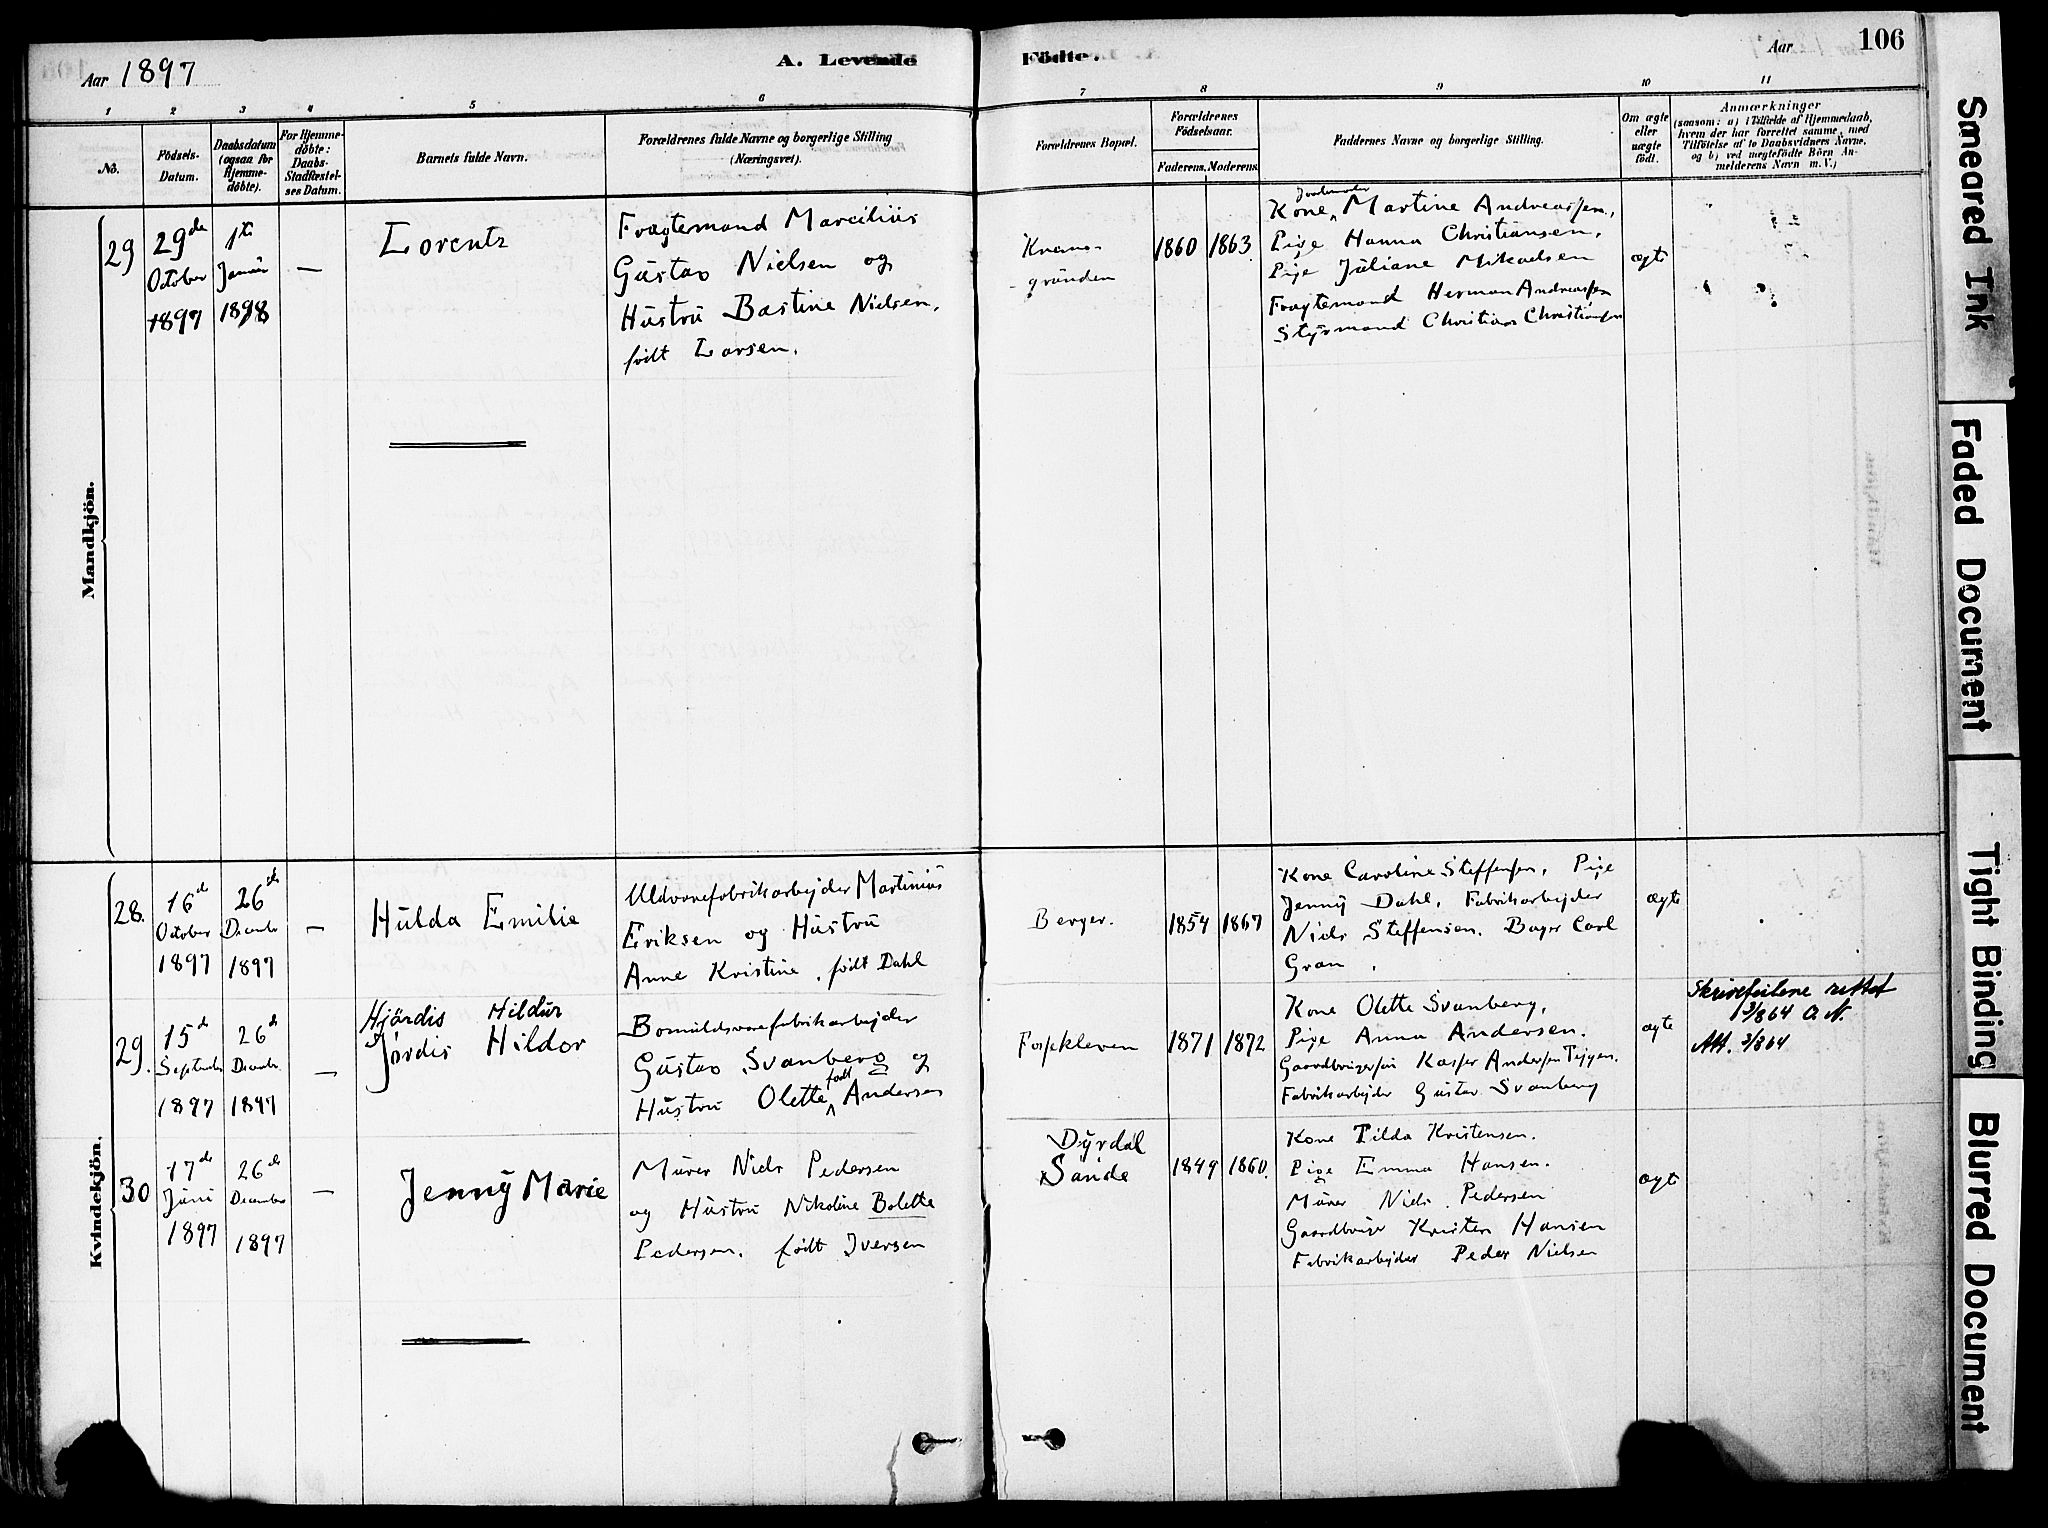 Aar 1897
A. Levende Födte.
Aar
106
1 2 3 4 5 6 7 8 9 10 11
No.
Födsels-Datum.
Daabsdatum (ogsaa for Hjemme-döbte).
For Hjemme-döbte: Daabs-Stadfæstel-ses Datum.
Barnets fulde Navn.
Forældrenes fulde Navne og borgerlige Stilling (Næringsvei).
Forældrenes Bopæl.
Forældrenes Födselsaar.
Faderens. Moderens.
Faddernes Navne og borgerlige Stilling.
Om ægte eller uægte födt.
Anmærkninger
(saasom: a) i Tilfælde af Hjemmedaab,
hvem der har forrettet samme, med
Tilföielse af to Daabsvidners Navne,
og b) ved uegtefödte Börn An-
melderens Navn m. V.)
Mandkjön.
29
29de October 1897
1te Januar 1898
—
Lorentz
Fragtemand Marcilius
Gustav Nielsen og
Hustru Bastine Nielsen,
født Larsen.
grunden
1860 1863.
Jordemoder
Kone, Martine Andreassen,
Pige Hanna Christiansen,
Pige Juliane Mikaelsen
Fragtemand Herman Andreassen
Styrmand Christian Christiansen
ægte
Kvindekjön.
28.
16de October 1897
26de December 1897
—
Hulda Emilie
Uldvarefabrikarbejder Martinius
Eriksen og Hustru
Anne Kristine, født Dahl
Berger.
1854 1867
Kone Caroline Steffensen, Pige
Jenny Dahl, Fabrikarbejder
Niels Steffensen. Bager Carl
Gran.
ægte
29.
15de September 1897
26de December 1897
—
Hjördis Hildur
Jørdis Hildor
Bomuldsvarefabrikarbejder
Gustav Svanberg og
Hustru Olette født Andersen
Fossekleven
1871 1872
Kone Olette Svanberg,
Pige Anna Andersen.
Gaardbrugersøn Kasper Andersen Tejgen.
Fabrikarbejder Gustav Svanberg
ægte
Skrivefeilene rettet
Att.
30
17de Juni 1897
26de December 1897
—
Jenny Marie
Murer Niels Pedersen
og Hustru Nikoline Bolette
Pedersen, født Iversen
Dyrdal
Sande
1849 1860.
Kone Tilda Kristensen.
Pige Emma Hansen.
Murer Niels Pedersen
Gaardbruger Kristen Hansen
Fabrikarbejder Peder Nielsen
ægte
Smeared Ink
Faded Document
Tight Binding
Blurred Document